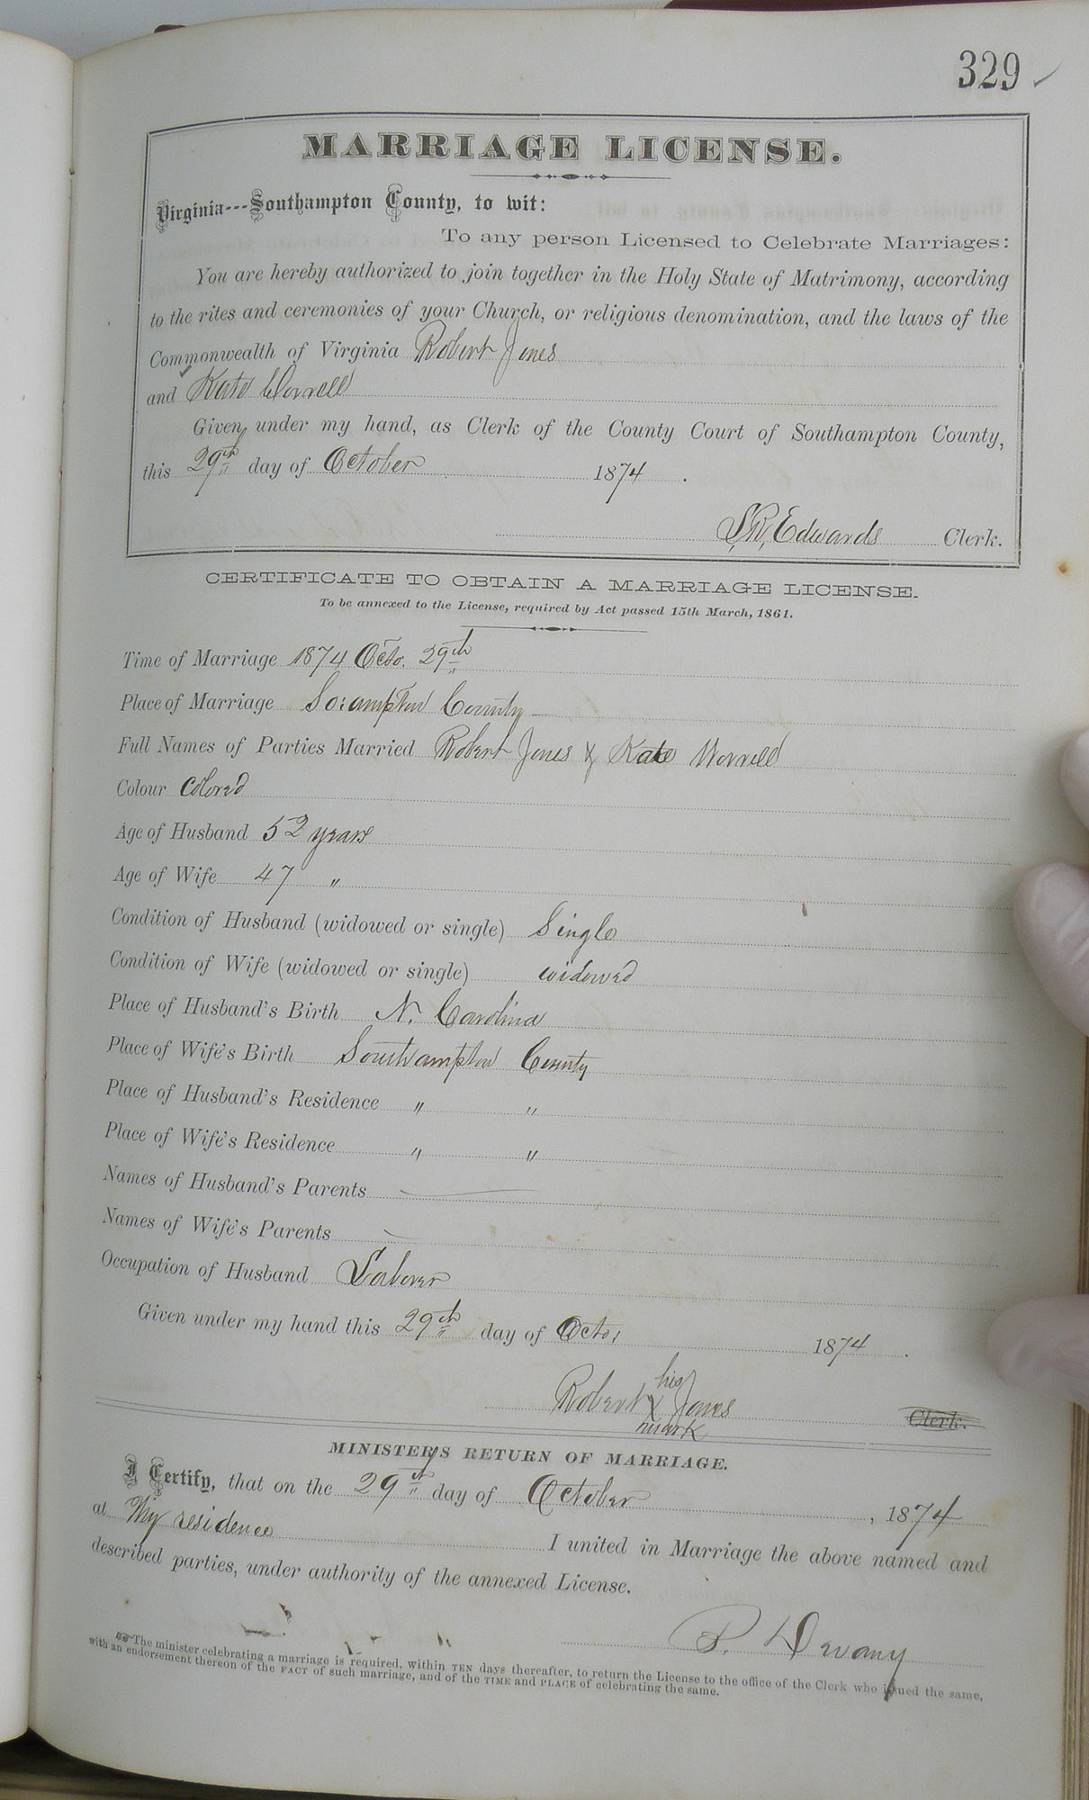 329
MARRIAGE LICENSE.
Virginia---Southampton County, to wit:
To any person Licensed to Celebrate Marriages:
You are hereby authorized to join together in the Holy State of Matrimony, according
to the rites and ceremonies of your Church, or religious denomination, and the laws of the
Commonwealth of Virginia Robert Jones
and Kate Worrell
Given under my hand, as Clerk of the County Court of Southampton County,
this 29th day of October 1874.
S,R, Edwards Clerk.
CERTIFICATE TO OBTAIN A MARRIAGE LICENSE.
To be annexed to the License, required by Act passed 15th March, 1861.
Time of Marriage 1874 Octo. 29th
Place of Marriage So:ampton County
Full Names of Parties Married Robert Jones & Kate Worrell
Colour Colored
Age of Husband 52 years
Age of Wife 47 "
Condition of Husband (widowed or single) Single
Condition of Wife (widowed or single) widowed
Place of Husband's Birth N. Carolina
Place of Wife's Birth Southampton County
Place of Husband's Residence " "
Place of Wife's Residence " "
Names of Husband's Parents —
Names of Wife's Parents
Occupation of Husband Laborer
Given under my hand this 29th day of Octo, 1874.
his
Robert X Jones Clerk.
mark
MINISTER'S RETURN OF MARRIAGE.
I Certify, that on the 29th day of October, 1874
at My residence I united in Marriage the above named and
described parties, under authority of the annexed License.
P. Devany
The minister celebrating a marriage is required, within TEN days thereafter, to return the License to the office of the Clerk who issued the same,
with an endorsement thereon of the FACT of such marriage, and of the TIME and PLACE of celebrating the same.